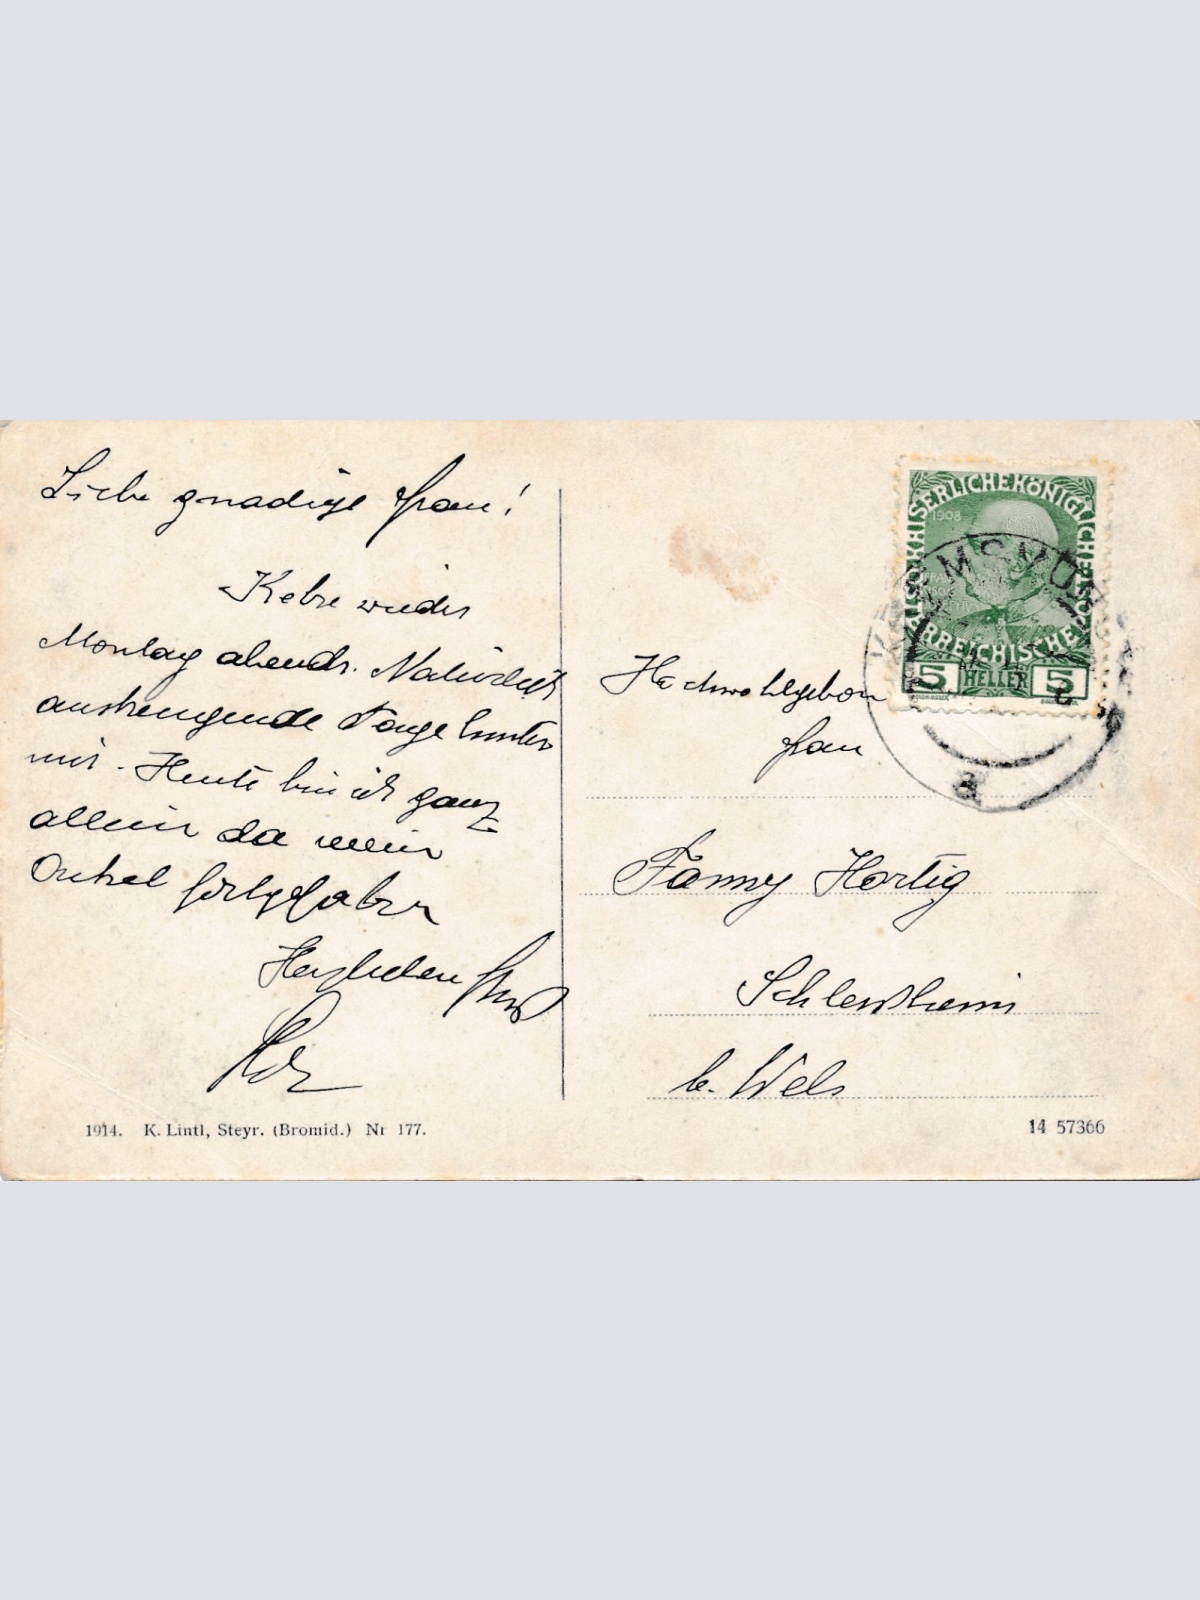 Liebe gnädige Frau!
Kehre wieder
Montag abends. Natürlich
anstrengende Tage hinter
mir. Heute bin ich ganz
allein da mein
Onkel fortgefahren
Herzlichen Gruß
KAISERLICHEKÖNIGLICHE
ÖSTERREICHISCHE
1908
5 HELLER 5
KREMSMÜN
a
Hochwohlgeboren
Frau
Fanny Hartig
Schleissheim
b. Wels
1914. K. Lintl, Steyr. (Bromid.) Nr 177.
14 57366